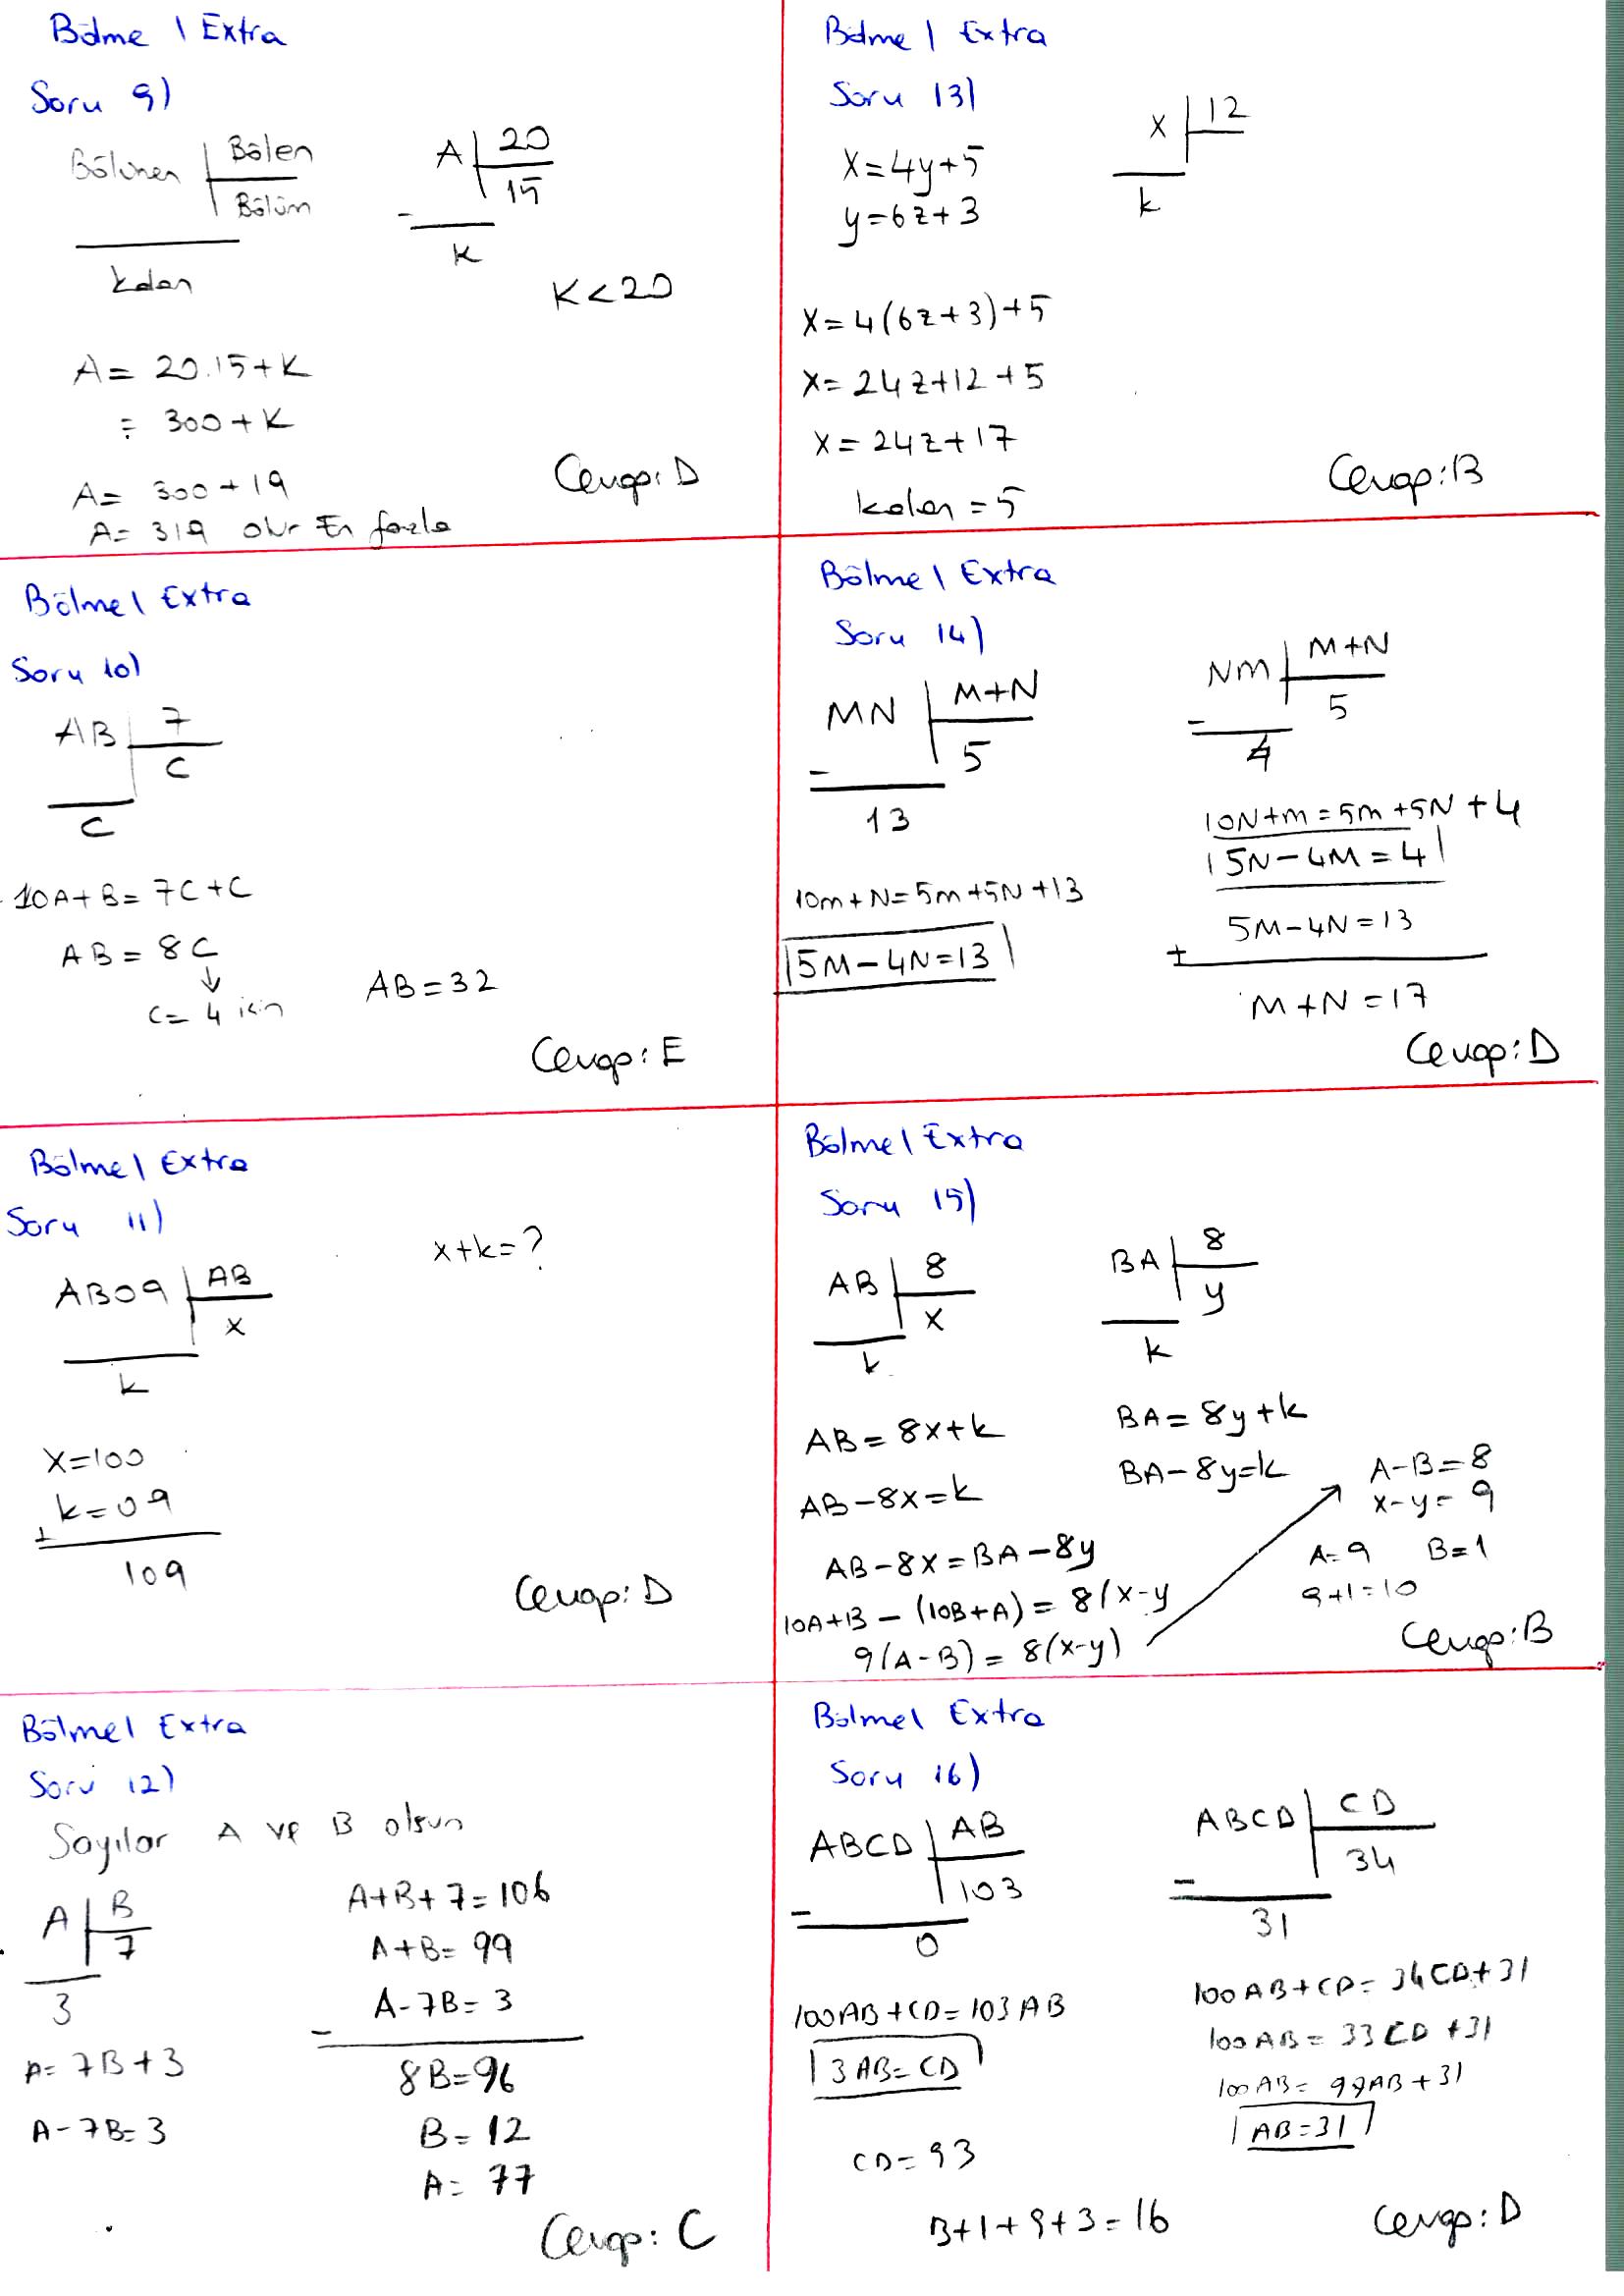 Bölme 1 Extra
Soru 9)
Bölünen | Bölen
Bölüm
kalan
A | 20
15
-
K
K<20
A= 20.15+K
= 300+K
A= 300+19
A= 319 olur En fazla
Cevap: D
Bölme 1 Extra
Soru 10)
AB | 7
C
C
10A+B= 7C+C
AB= 8C
↓
C= 4 için
AB=32
Cevap: E
Bölme 1 Extra
Soru 11)
x+k=?
AB09 | AB
x
k
x=100
k=09
+
109
Cevap: D
Bölme 1 Extra
Soru 12)
Sayılar A ve B olsun
A | B
7
3
A= 7B+3
A-7B=3
A+B+7=106
A+B= 99
A-7B= 3
-
8B=96
B= 12
A= 77
Cevap: C
Bölme 1 Extra
Soru 13)
x=4y+5
y=6z+3
x | 12
k
x=4(6z+3)+5
x= 24z+12+5
x= 24z+17
kalan = 5
Cevap: B
Bölme 1 Extra
Soru 14)
MN | M+N
5
-
13
10m+N=5m+5N+13
5M-4N=13
NM | M+N
5
-
4
10N+m=5m+5N+4
5N-4M=4
5M-4N=13
+
M+N=17
Cevap: D
Bölme 1 Extra
Soru 15)
AB | 8
x
k
BA | 8
y
k
AB= 8x+k
AB-8x=k
BA= 8y+k
BA-8y=k
AB-8x=BA-8y
10A+B-(10B+A)= 8(x-y
9(A-B)= 8(x-y)
A-B=8
x-y= 9
A=9 B=1
9+1=10
Cevap: B
Bölme 1 Extra
Soru 16)
ABCD | AB
103
-
0
100AB+CD=103AB
3AB=CD
CD=93
ABCD | CD
34
-
31
100AB+CD= 34CD+31
100AB= 33CD+31
100AB= 99AB+31
AB=31
3+1+9+3=16
Cevap: D